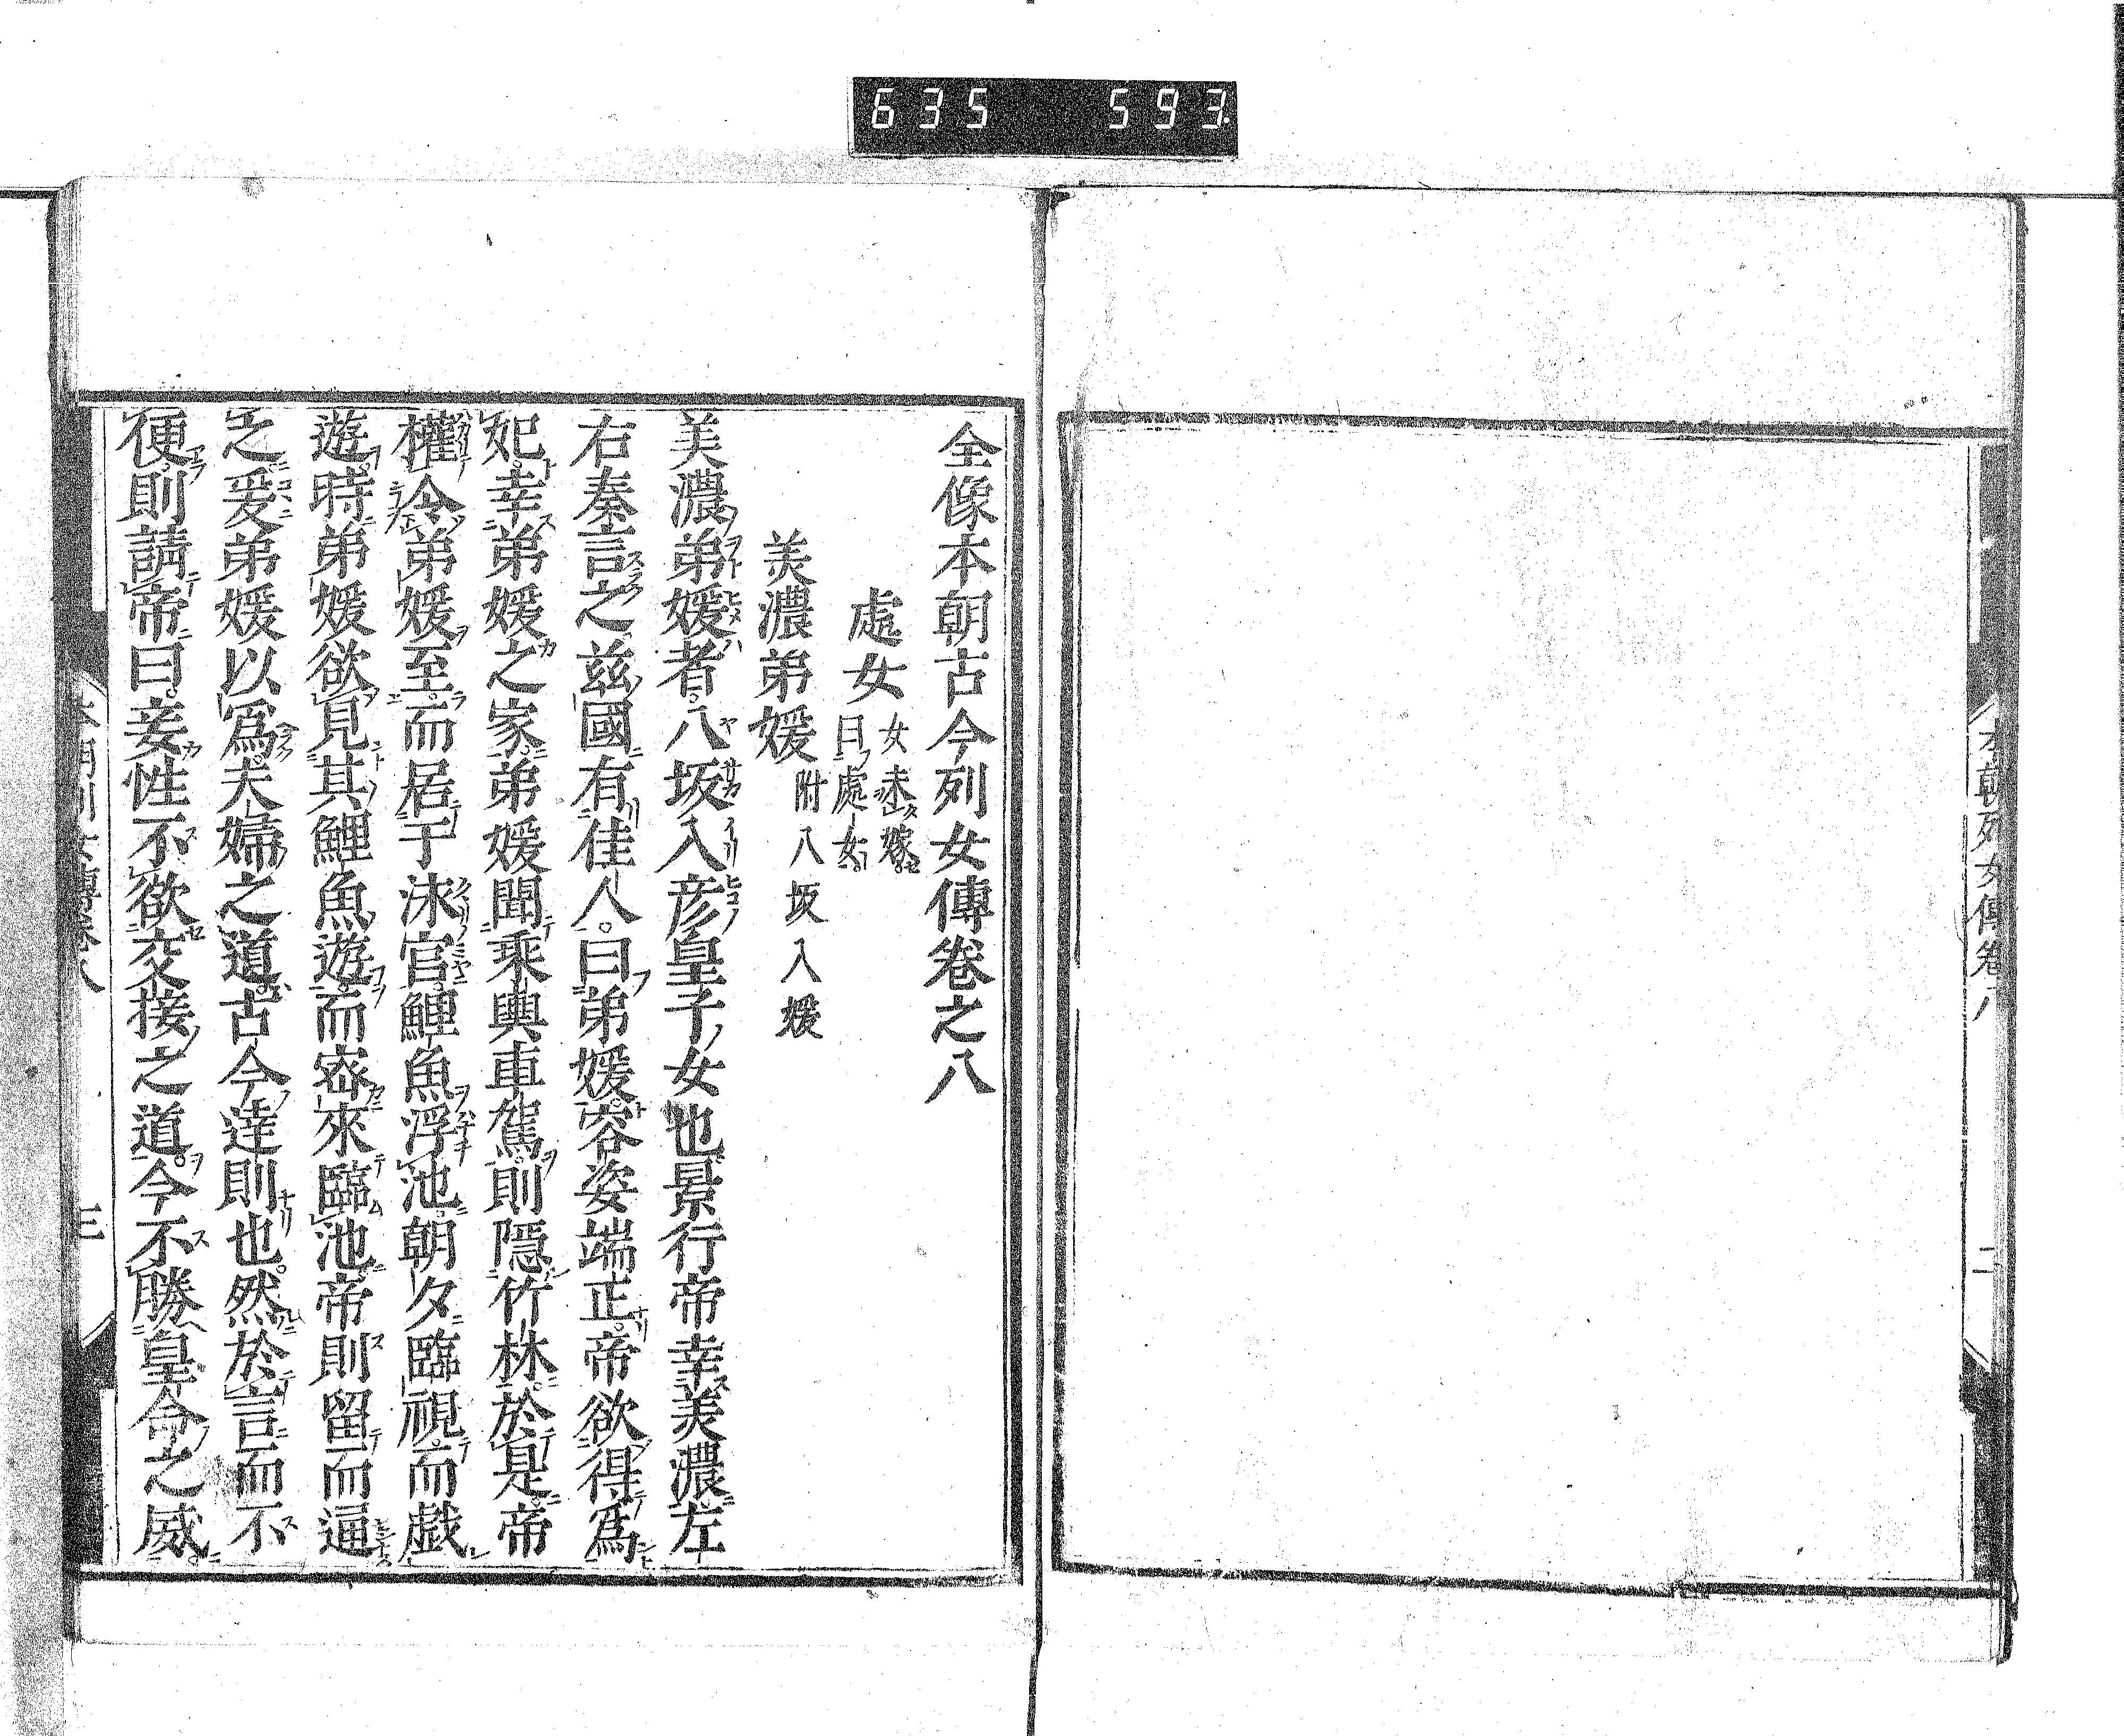 635 593
本朝列女傳卷八
二
全像本朝古今列女傳卷之八
處女 女未嫁曰處女
美濃弟媛 附八坂入媛
美濃弟媛者八坂入彦皇子女也景行帝幸美濃左
右奏言之茲國有佳人曰弟媛容姿端正帝欲得爲
妃幸弟媛之家弟媛聞乘輿車駕則隱竹林於是帝
權令弟媛至而居于泳宮鯉魚浮池朝夕臨視而戯
遊時弟媛欲見其鯉魚遊而密來臨池帝則留而逼
之爰弟媛以爲夫婦之道古今達則也然於言而不
便則請帝曰妾性不欲交接之道今不勝皇命之威
本朝列女傳卷八
三